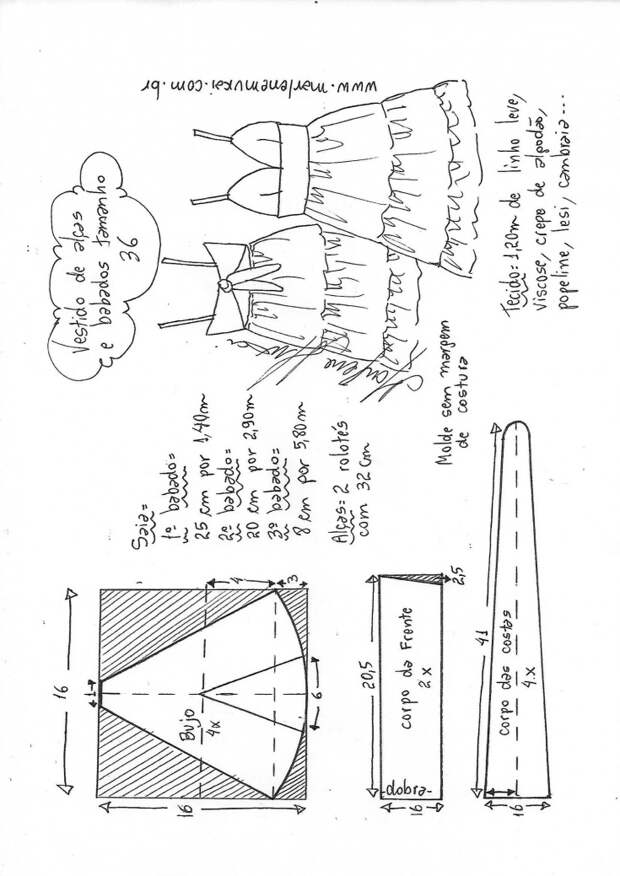 Vestido de alças
e babados tamanho
36
www.marlenemukai.com.br
Saia=
1º babado=
25 cm por 1,40m
2º babado=
20 cm por 2,90m
3º babado=
8 cm por 5,80m
Alças= 2 rolotés
com 32 cm
Tecido= 1,20m de linho leve,
viscose, crepe de algodão,
popeline, lesi, cambraia...
Molde sem margem
de costura
16
1
4
3
Bujo
4x
6
16
20,5
corpo da frente
2x
dobra
16
2,5
41
corpo das costas
4x
16